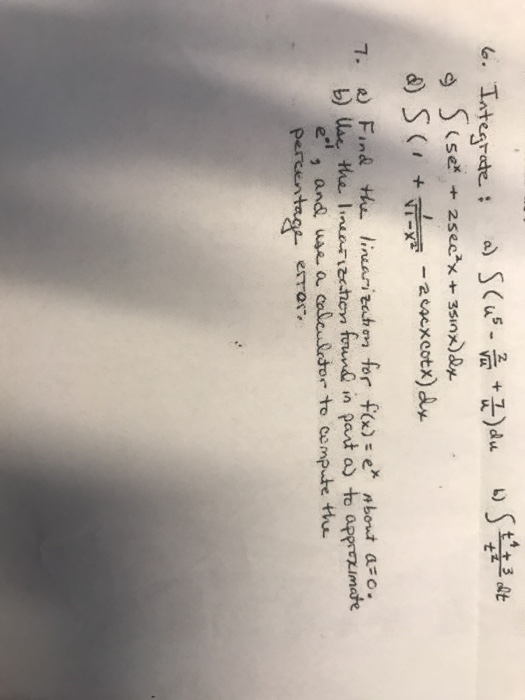 6. Integrate : a) ∫(u⁵ - 2/√u + 7/u) du b) ∫ (t⁴+3)/t² dt
c) ∫ (5eˣ + 2sec²x + 3sinx) dx
d) ∫ (1 + 1/√(1-x²) - 2cscxcotx) dx
7. a) Find the linearization for f(x) = eˣ About a=0.
b) Use the linearization found in part a) to approximate
e^.1, and use a calculator to compute the
percentage error.